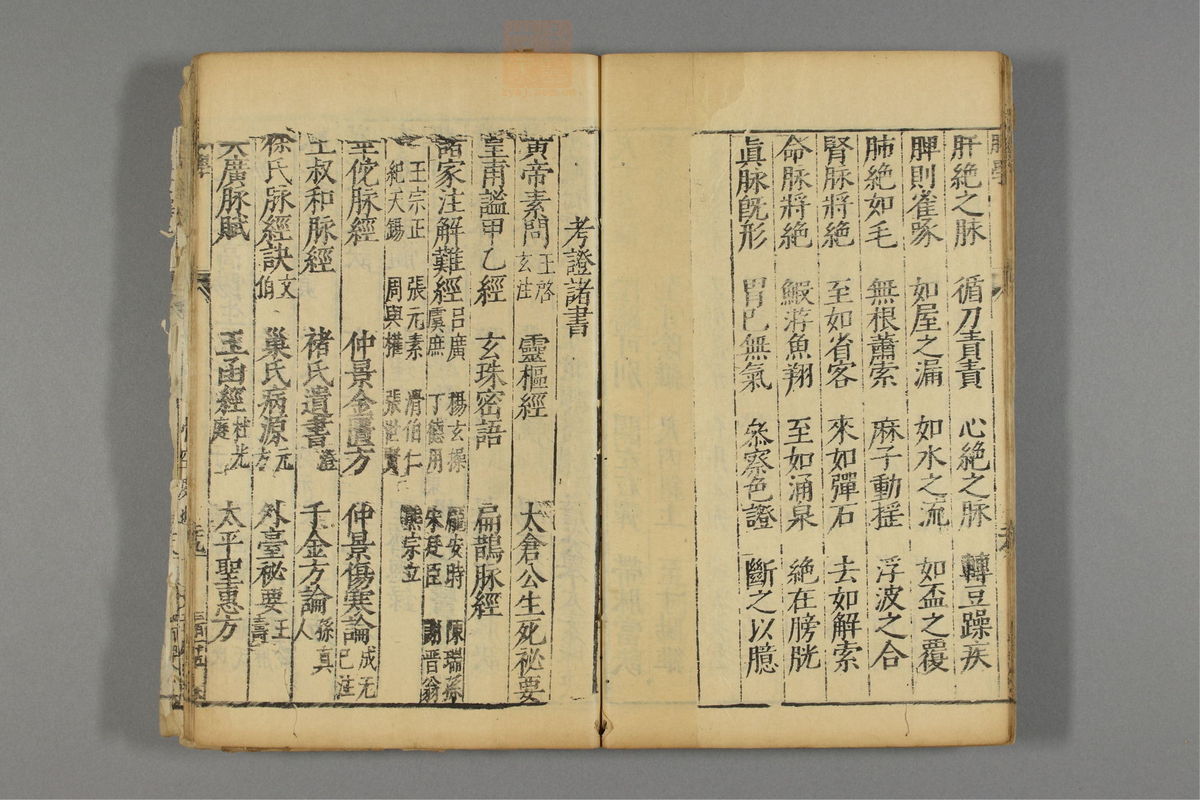 肝絕之脉 循刀責責 心絕之脉 轉豆躁疾
脾則雀啄 如屋之漏 如水之流 如盃之覆
肺絕如毛 無根蕭索 麻子動搖 浮波之合
腎脉將絕 至如省客 來如彈石 去如解索
命脉將絕 鰕游魚翔 至如涌泉 絕在膀胱
眞脉旣形 胃已無氣 叅察色證 斷之以臆
考證諸書
黃帝素問 王啓玄注 靈樞經 太倉公生死祕要
皇甫謐甲乙經 玄珠密語 扁鵲脉經
諸家注解難經 呂廣 楊玄操 龐安時 陳瑞孫 虞庶 丁德用 宋廷臣 謝晋翁
王宗正 張元素 滑伯仁 熊宗立 紀天錫 周與權 張世賢
華佗脉經 仲景金匱方 仲景傷寒論 成无己注
王叔和脉經 褚氏遺書 澄 千金方論 孫真人
徐氏脉經訣 文伯 巢氏病源 元方 外臺祕要 王燾
大廣脉賦 玉函經 杜光庭 太平聖惠方